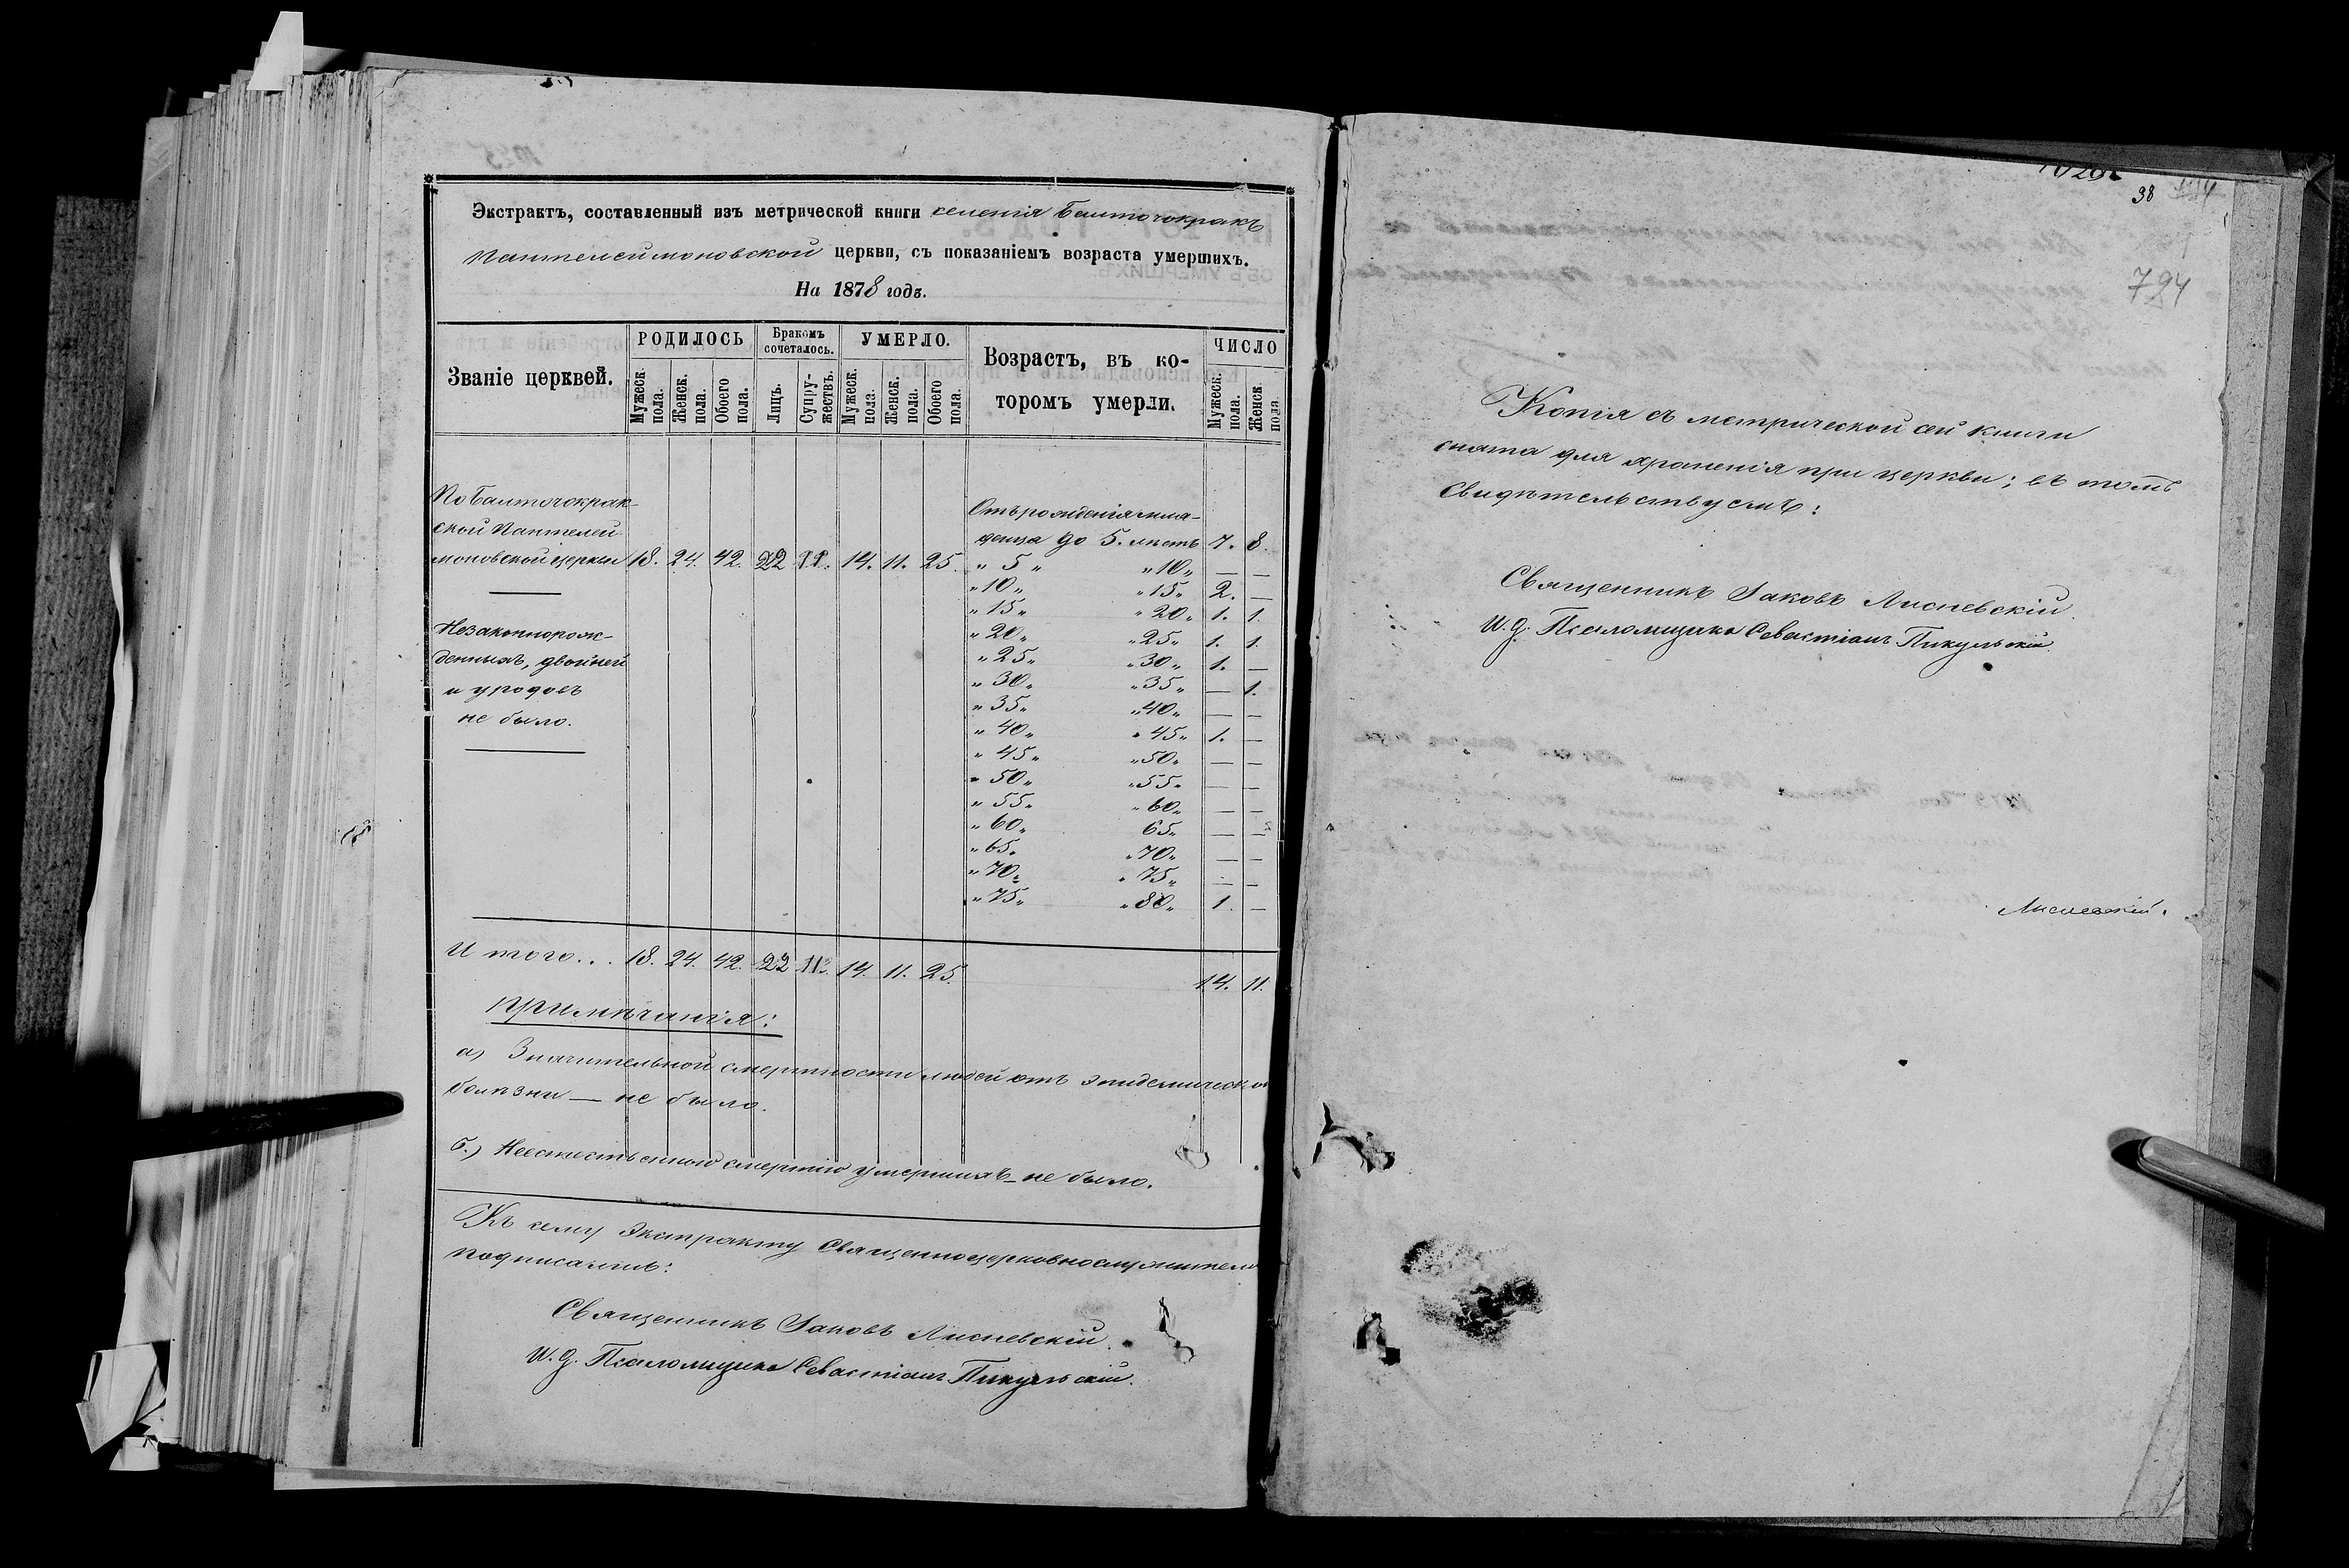 Экстрактъ, составленный изъ метрической книги селенія Балточокракъ
Пантелеимоновской церкви, съ показаніемъ возраста умершихъ.
На 1878 годъ.
Званіе церквей. РОДИЛОСЬ Бракомъ сочеталось. УМЕРЛО. Возрастъ, въ ко-
тором умерли. ЧИСЛО
Мужеск. пола. Женск. пола. Обоего пола. Лицъ. Супру-
жествъ. Мужеск. пола. Женск. пола. Обоего пола. Мужеск. пола. Женск. пола
По Балточокрак-
ской Пантелей-
моновской церкви 18. 24. 42. 22 11. 14. 11. 25.
Отъ рожденія мла-
денца до 5. лѣтъ 7. 8.
" 5 " " 10 " — —
" 10 " " 15 " 2. —
" 15 " " 20 " 1. 1.
" 20 " " 25 " 1. 1.
" 25 " " 30 " 1. —
" 30 " " 35 " — 1.
" 35 " " 40 " — —
" 40 " " 45 " 1. —
" 45 " " 50 " — —
" 50 " " 55 " — —
" 55 " " 60 " — —
" 60 " 65 " — —
" 65 " " 70 " — —
" 70 " " 75 " — —
" 75 " " 80 " 1. —
Незаконнорож-
денныхъ, двойней
и уродовъ
не было.
Итого... 18. 24. 42. 22 11. 14. 11. 25. 14. 11.
Примѣчанія:
а) Значительной смертности людей отъ эпидемической
болѣзни — не было.
б.) Неестественною смертію умершихъ — не было.
Къ сему экстракту Священноцерковнослужители
подписались:
Священникъ Іаковъ Лисневскій.
И. д. Псаломщика Севастіанъ Пикульскій.
1026
38
784
Копія съ метрической сей книги
снята для храненія при церкви; въ томъ
свидѣтельствуемъ:
Священникъ Іаковъ Лисневскій
И. д. Псаломщика Севастіанъ Пикульскій.
Лисневскій.